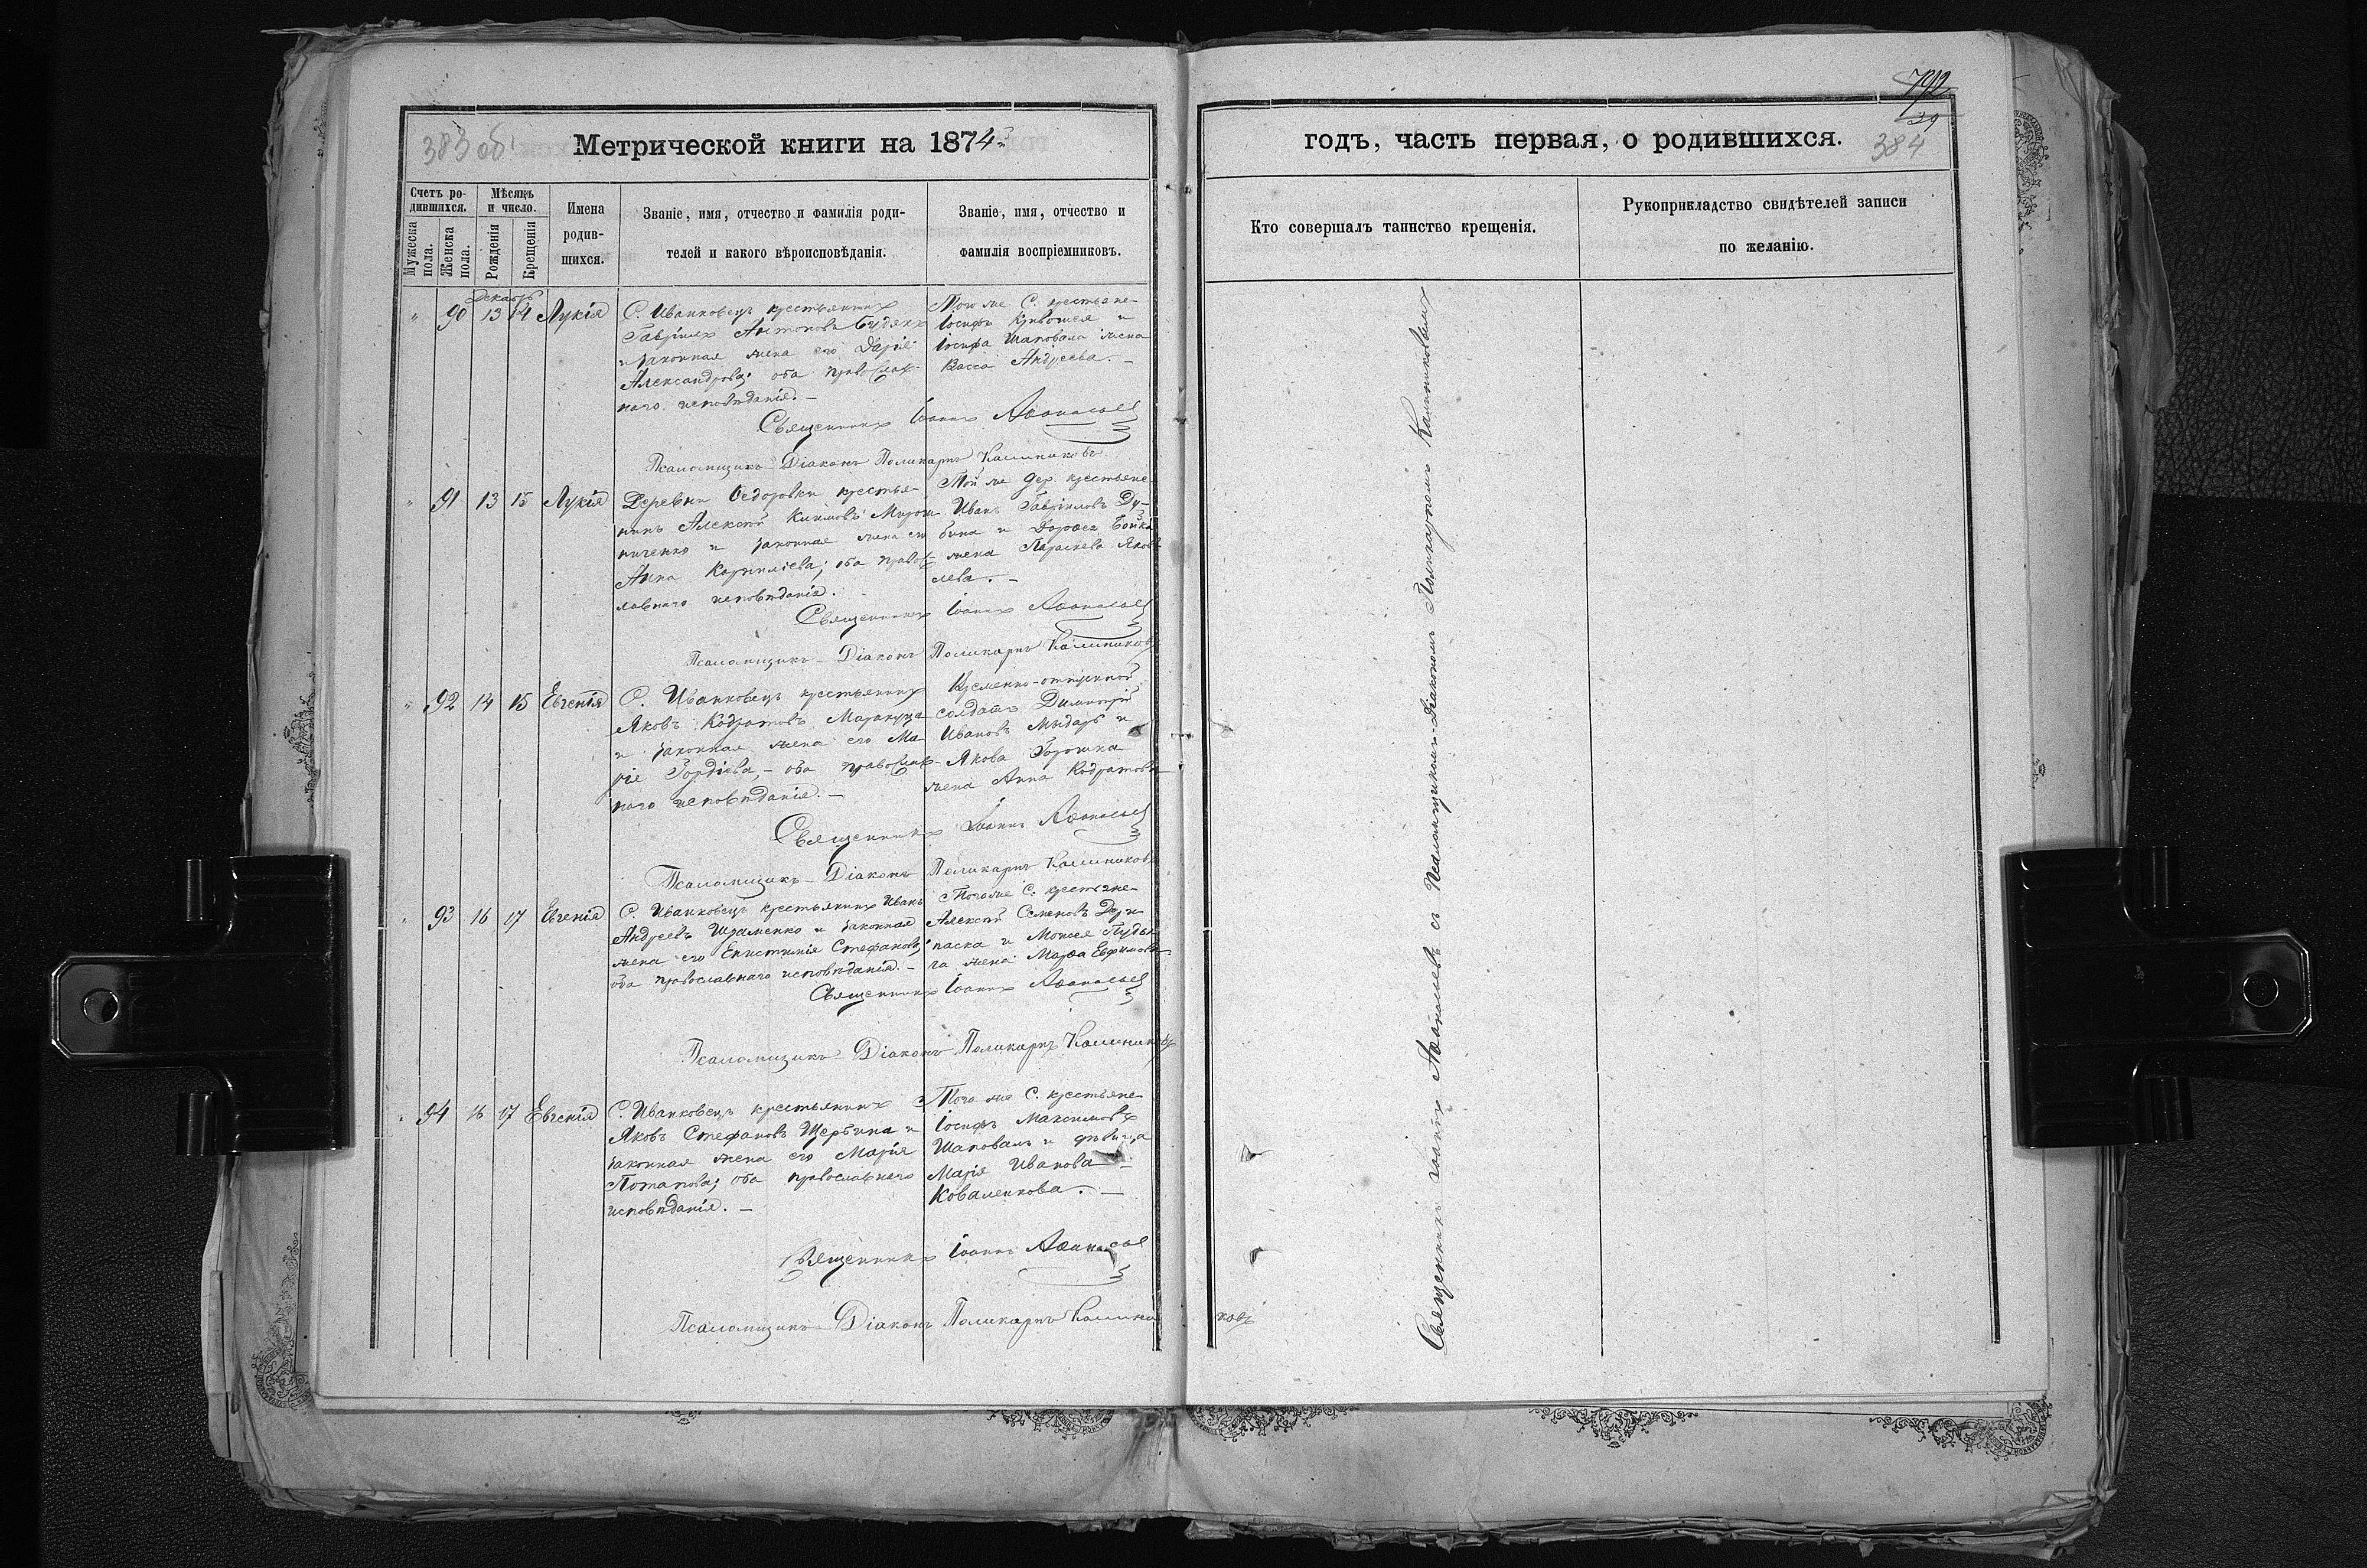 383 об
Метрической книги на 1874
Счетъ ро-
дившихся.
Мужеска
пола.
Женска
пола.
Мѣсяцъ
и число.
Рожденія
Крещенія
Имена
родив-
шихся.
Званіе, имя, отчество и фамилія роди-
телей и какого вѣроисповѣданія.
Званіе, имя, отчество и
фамилія воспріемниковъ.
Декабрь
" 90 13 14 Лукія
С. Иванковецъ крестьянинъ
Гавріилъ Антоновъ Будякъ
и законная жена его Дарія
Александрова; оба православ-
наго исповѣданія. —
Того же С. крестьяне
Іосифъ и
Іосифа Шаповала жена
Васса Андреева. —
Священникъ Іоаннъ Аѳанасьев
Псаломщикъ-Діаконъ Поликарпъ Калинниковъ
" 91 13 15 Лукія
Деревни Ѳедоровки крестья-
нинъ Алексѣй Климовъ Мирош-
ниченко и законная жена его
Анна Корниліева; оба правос-
лавнаго исповѣданія.
Той же дер. крестьяне
Иванъ Гавріиловъ Ду-
бина и Дороѳея Бойка
жена Параскева Яков-
лева. —
Священникъ Іоаннъ Аѳанасьев
Псаломщикъ-Діаконъ Поликарпъ Калинниковъ
" 92 14 15 Евгенія
С. Иванковецъ крестьянинъ
Яковъ Кодратовъ Маракуца
и законная жена его Ма-
рія Гордіева, — оба православ-
наго исповѣданія. —
Временно-отпускной
солдатъ Димитрій
Ивановъ и
Якова Горошка
жена Анна Кодратова
Священникъ Іоаннъ Аѳанасьев
Псаломщикъ-Діаконъ Поликарпъ Калинниковъ
" 93 16 17 Евгенія
С. Иванковецъ крестьянинъ Иванъ
Андреевъ Шраменко и законная
жена его Епистимія Стефанова;
оба православнаго исповѣданія. —
Того же С. крестьяне
Алексѣй Семеновъ Дери-
паска и Моисея
жена Марѳа Евфимова
Священникъ Іоаннъ Аѳанасьев
Псаломщикъ-Діаконъ Поликарпъ Калинниковъ
" 94 16 17 Евгенія
С. Иванковецъ крестьянинъ
Яковъ Стефановъ Щербина и
законная жена его Марія
Потапова; оба православнаго
исповѣданія. —
Того же С. крестьяне
Іосифъ Максимовъ
Шаповалъ и дѣвица
Марія Иванова
Коваленкова. —
Священникъ Іоаннъ Аѳанасьев
Псаломщикъ-Діаконъ Поликарпъ Калинни
ковъ
792
39
384
годъ, часть первая, о родившихся.
Кто совершалъ таинство крещенія.
Рукоприкладство свидѣтелей записи
по желанію.
Священникъ Іоаннъ Аѳанасьевъ съ Псаломщикомъ-Діакономъ Поликарпомъ Калинниковымъ